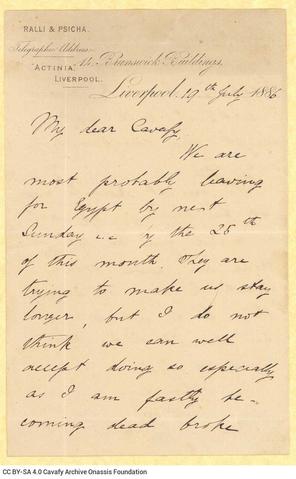 RALLI & PSICHA.
Telegraphic Address:-
"ACTINIA,"
LIVERPOOL.
14, Brunswick Buildings,
Liverpool, 19th July 1886
My dear Cavafy,
We are
most probably leaving
for Egypt by next
Sunday i.e. by the 25th
of this month. They are
trying to make us stay
longer, but I do not
think we can well
accept doing so especially
as I am fastly be-
coming dead broke
CC BY-SA 4.0 Cavafy Archive Onassis Foundation